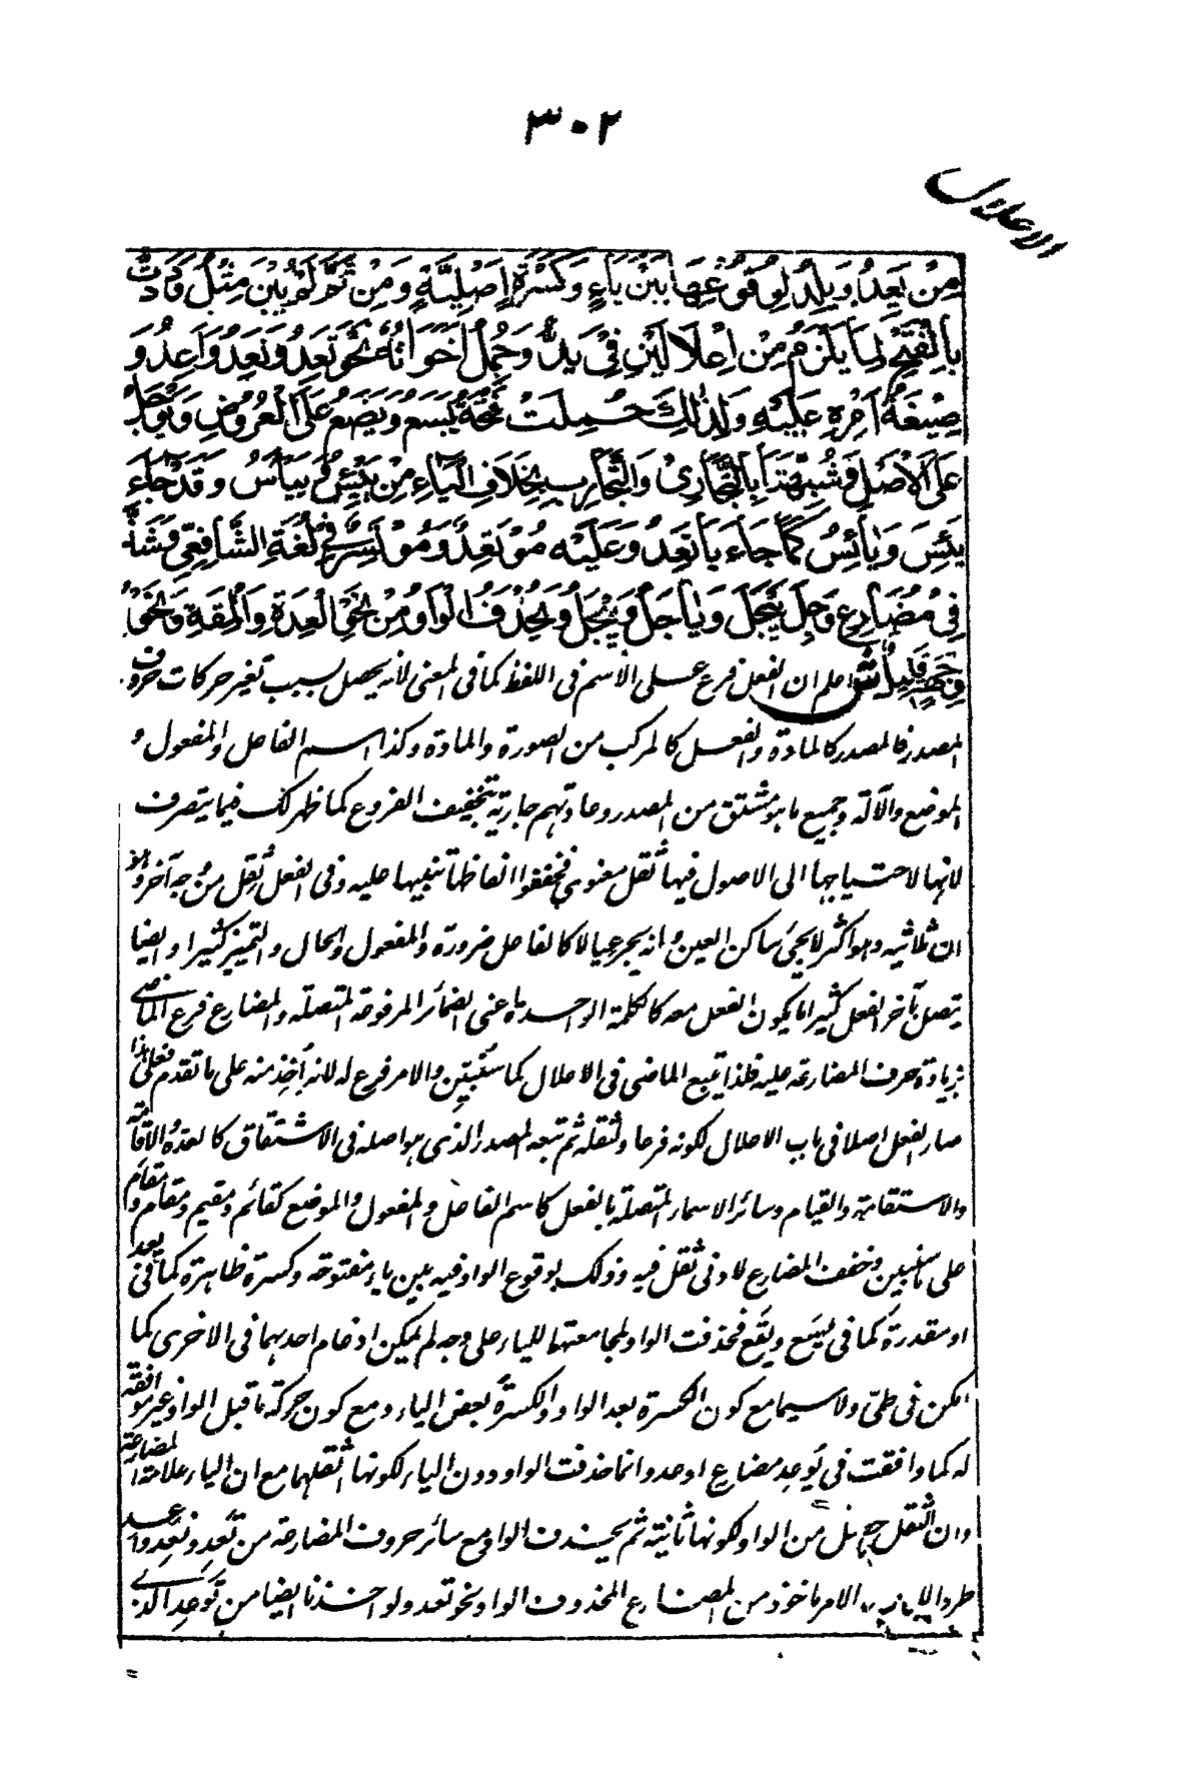 ٣٠٢
الاعلال
مِنْ يَعِدُ وَيَلِدُ لِوُقُوْعِهَا بَيْنَ يَاءٍ وَكَسْرَةٍ اَصْلِيَّةٍ وَمِنْ ثَمَّ لَمْ يُبْنَ مِثْلُ وَدَدْتُ
بِالْفَتْحِ لِمَا يَلْزَمُ مِنْ اِعْلَالَيْنِ فِيْ يَدُّ وَحُمِلَ اَخَوَاتُهُ نَحْوُ تَعِدُ وَنَعِدُ وَاَعِدُ وَ
صِيْغَةُ اَمْرِهٖ عَلَيْهِ وَلِذٰلِكَ حُمِلَتْ فَتْحَةُ يَسَعُ وَيَضَعُ عَلَى الْعُرُوْضِ وَيَوْجَلُ
عَلَى الْاَصْلِ وَشُبِّهَتَا بِالتَّجَارِيْ وَالتَّجَارِبِ بِخِلَافِ الْيَاءِ مِنْ يَيْئِسُ وَيَيْاَسُ وَقَدْ جَاءَ
يَئِسَ وَيَائِسُ كَمَا جَاءَ يَاتَعِدُ وَعَلَيْهِ مُوْتَعِدٌ وَمُوْتَسِرٌ فِيْ لُغَةِ الشَّافِعِيِّ وَشَذَّ
فِيْ مُضَارِعِ وَجِلَ يَيْجَلُ وَيَاجَلُ وَيِيْجَلُ وَيُحْذَفُ الْوَاوُ مِنْ نَحْوِ الْعِدَةِ وَالْمِقَةِ وَنَحْوُ
وِجْهَةٍ قَلِيْلٌ ش اعلم ان الفعل فرع على الاسم فى اللفظ كما فى المعنى لانه يحصل بسبب تغير حركات حروف
المصدر فالمصدر كالمادة والفعل كالمركب من الصورة والمادة وكذا اسم الفاعل والمفعول و
الموضع والآلة وجميع ما هو مشتق من المصدر وعادتهم جارية بتخفيف الفروع كما ظهر لك فيما يتصرف
لانها لاحتياجها الى الاصول فيها ثقل معنوى فخففوا الفاظها تنبيها عليه وفى الفعل ثقل من وجه آخر وهو
ان ثلاثيه وهو اكثر لا يجئ ساكن العين وانه يجر عيالا كالفاعل ضرورة والمفعول والحال والتمييز كثيرا وايضا
يتصل بآخر الفعل كثيرا ما يكون الفعل معه كالكلمة الواحدة اعنى الضمائر المرفوعة المتصلة والمضارع فرع الماضى
بزيادة حرف المضارعة عليه فلذا يتبع الماضى فى الاعلال كما سنبين والامر فرع له لانه أخذ منه على ما تقدم فعلى هذا
صار الفعل اصلا فى باب الاعلال لكونه فرعا ولثقله ثم تبعه المصدر الذى هو اصله فى الاشتقاق كالعدة والاقامة
والاستقامة والقيام وسائر الاسماء المتصلة بالفعل كاسم الفاعل والمفعول والموضع كقائم ومقيم ومقام ومقام
على ما سنبين وخفف المضارع لادنى ثقل فيه وذلك بوقوع الواو فيه بين ياء مفتوحة وكسرة ظاهرة كما فى يعد
او مقدرة كما فى يسع ويقع فحذفت الواو لمجامعتها للياء على وجه لم يمكن ادغام احدهما فى الاخرى كما
امكن فى طىّ ولا سيما مع كون الكسرة بعد الواو والكسرة بعض الياء ومع كون حركة ما قبل الواو غير موافقة
له كما وافقت فى يُوعِد مضارع اوعد وانما حذفت الواو دون الياء لكونها اثقلهما مع ان الياء علامة المضارعة
وان الثقل حصل من الواو لكونها ثانية ثم يحذف الواو مع سائر حروف المضارعة من تَعِد ونَعِد واعد
طردا للباب والامر ماخوذ من المضارع المحذوف الواو نحو تعد ولو اخذنا ايضا من تَوْعِد الذى